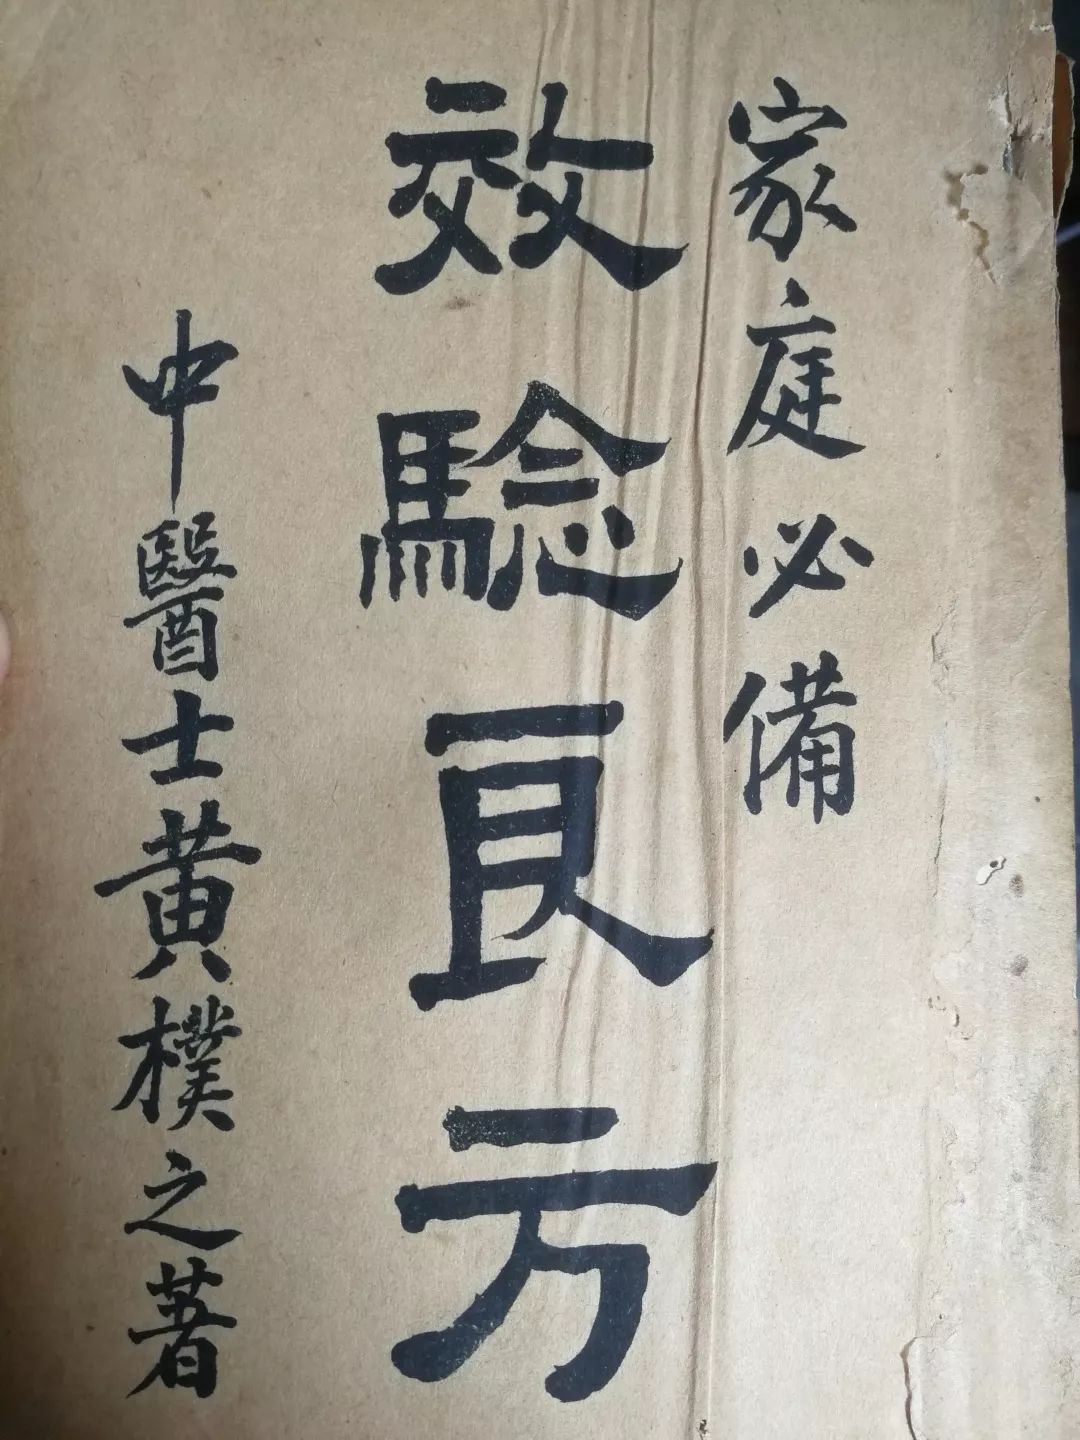 家庭必備
效騐良方
中醫士黃樸之著